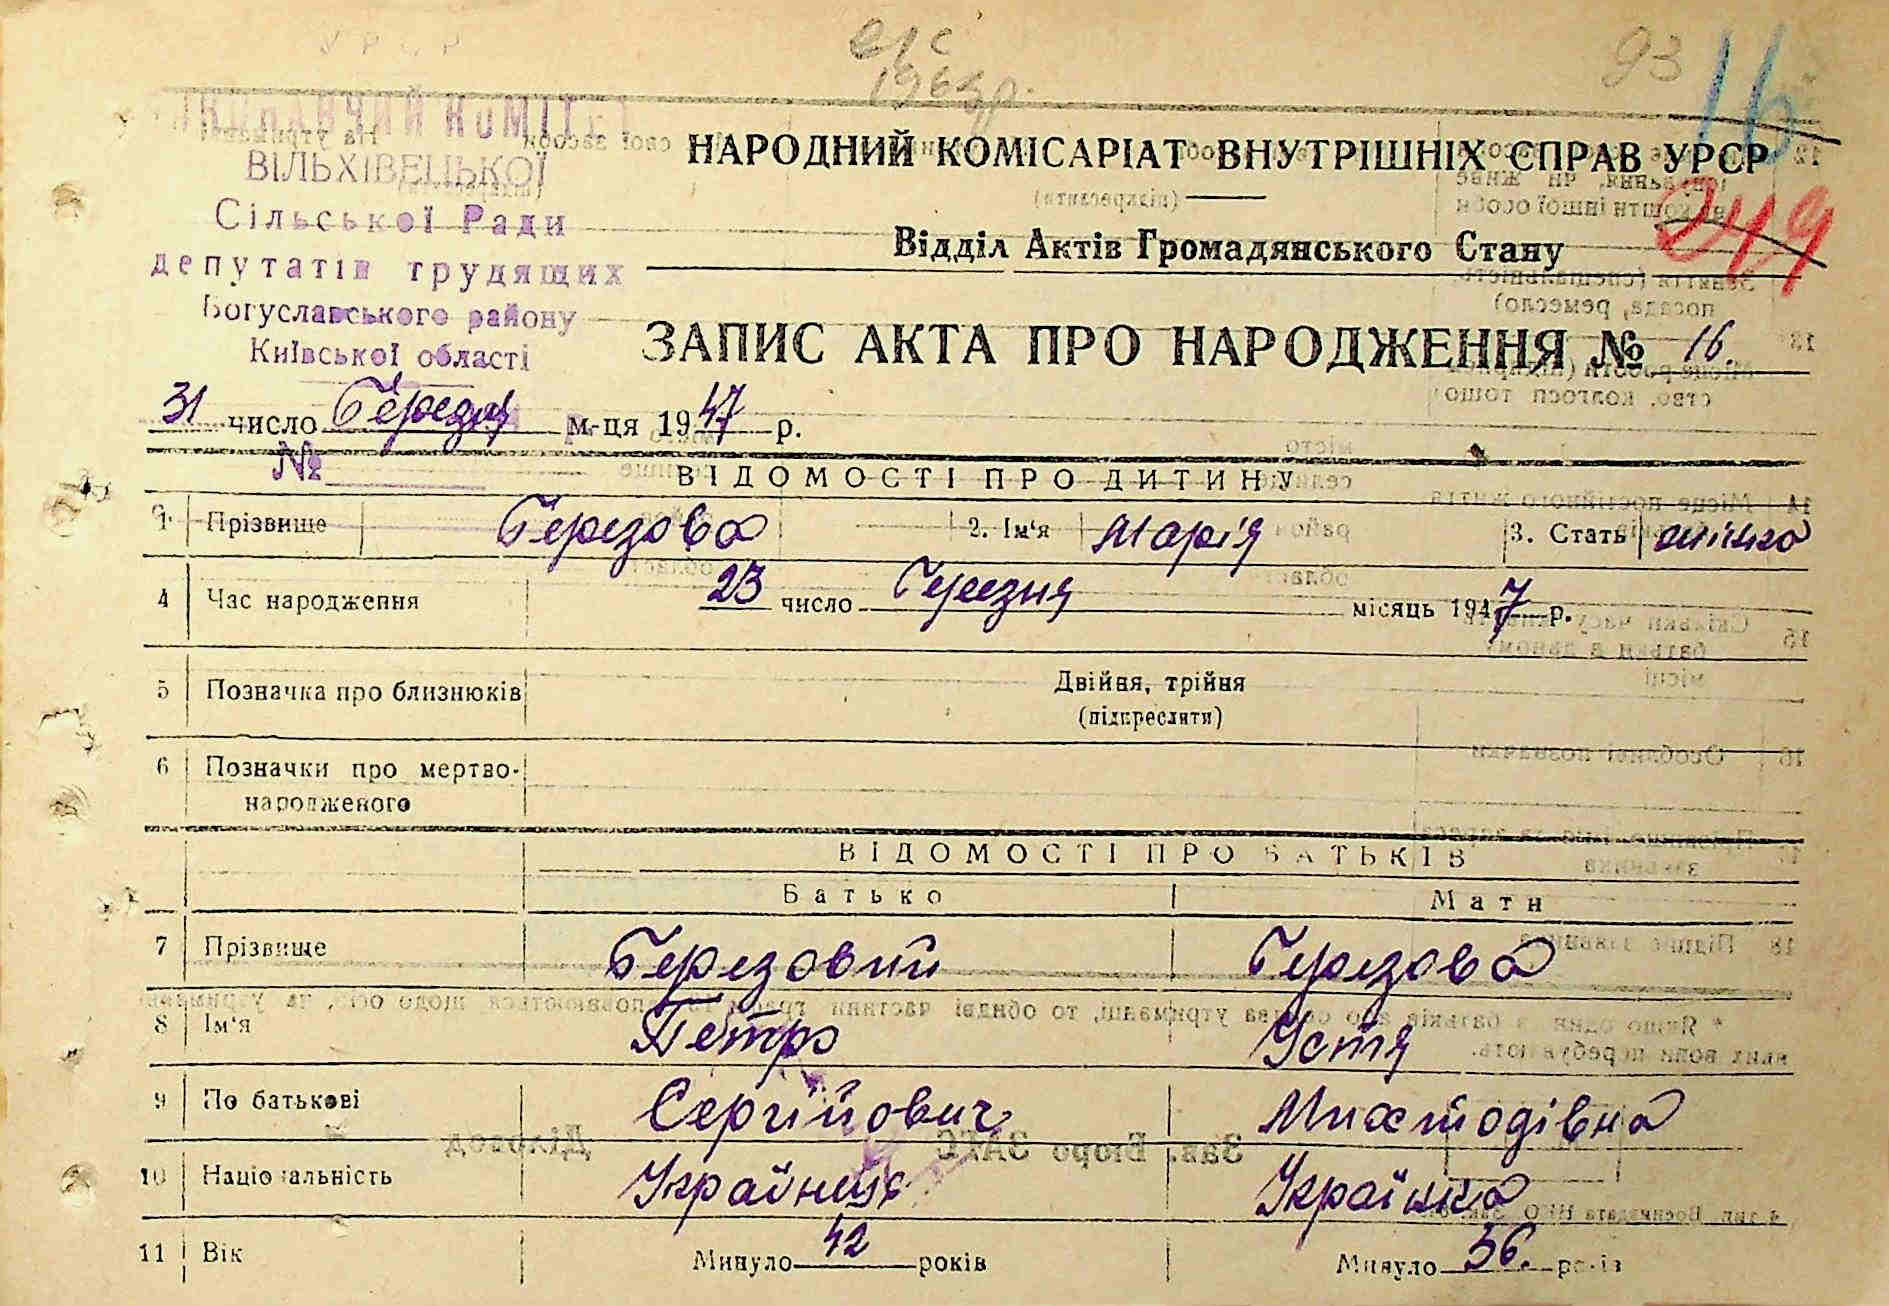 93 16
ВИКОНАВЧИЙ КОМІТЕТ
ВІЛЬХІВЕЦЬКОЇ
Сільської Ради
депутатів трудящих
Богуславського району
Київської області
№
НАРОДНИЙ КОМІСАРІАТ ВНУТРІШНІХ СПРАВ УРСР
249
Відділ Актів Громадянського Стану
ЗАПИС АКТА ПРО НАРОДЖЕННЯ № 16.
31 число Березня м-ця 1947 р.
ВІДОМОСТІ ПРО ДИТИНУ
1 Прізвище Березова 2. Ім'я Марія 3. Стать жінка
4 Час народження 23 число Березня місяць 1947 р.
5 Позначка про близнюків Двійня, трійня
(підкреслити)
6 Позначки про мертво-
народженого
ВІДОМОСТІ ПРО БАТЬКІВ
Батько Мати
7 Прізвище Березовий Березова
8 Ім'я Петро Устя
9 По батькові Сергійович
10 Національність Українець Українка
11 Вік Минуло 42 років Минуло 36. років